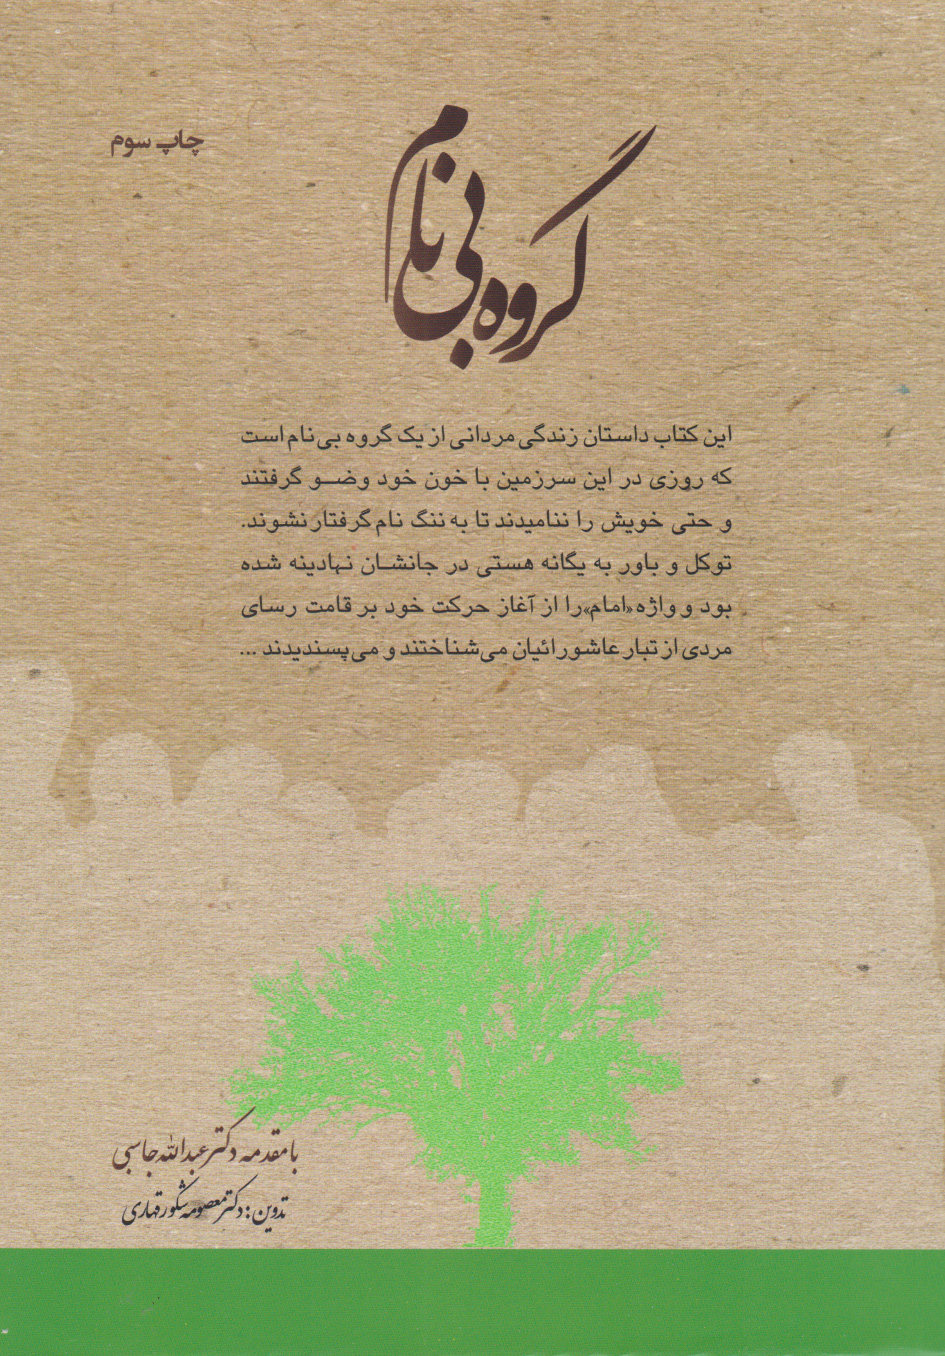 چاپ سوم
گروه بی نام
این کتاب داستان زندگی مردانی از یک گروه بی‌نام است
که روزی در این سرزمین با خون خود وضو گرفتند
و حتی خویش را ننامیدند تا به ننگ نام گرفتار نشوند.
توکل و باور به یگانه هستی در جانشان نهادینه شده
بود و واژه «امام» را از آغاز حرکت خود بر قامت رسای
مردی از تبار عاشورائیان می‌شناختند و می‌پسندیدند ...
با مقدمه دکتر عبدالله جاسبی
تدوین: دکتر معصومه شکور قهاری